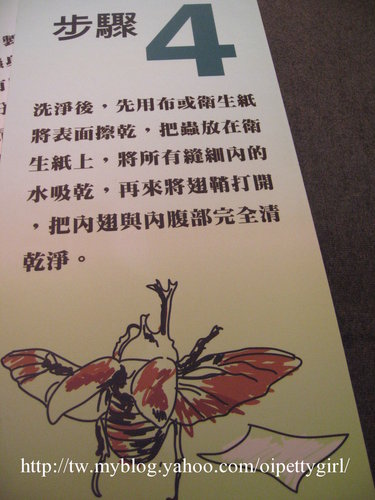 步驟4
洗淨後，先用布或衛生紙
將表面擦乾，把蟲放在衛
生紙上，將所有縫細內的
水吸乾，再來將翅鞘打開
，把內翅與內腹部完全清
乾淨。
http://tw.myblog.yahoo.com/oipettygirl/